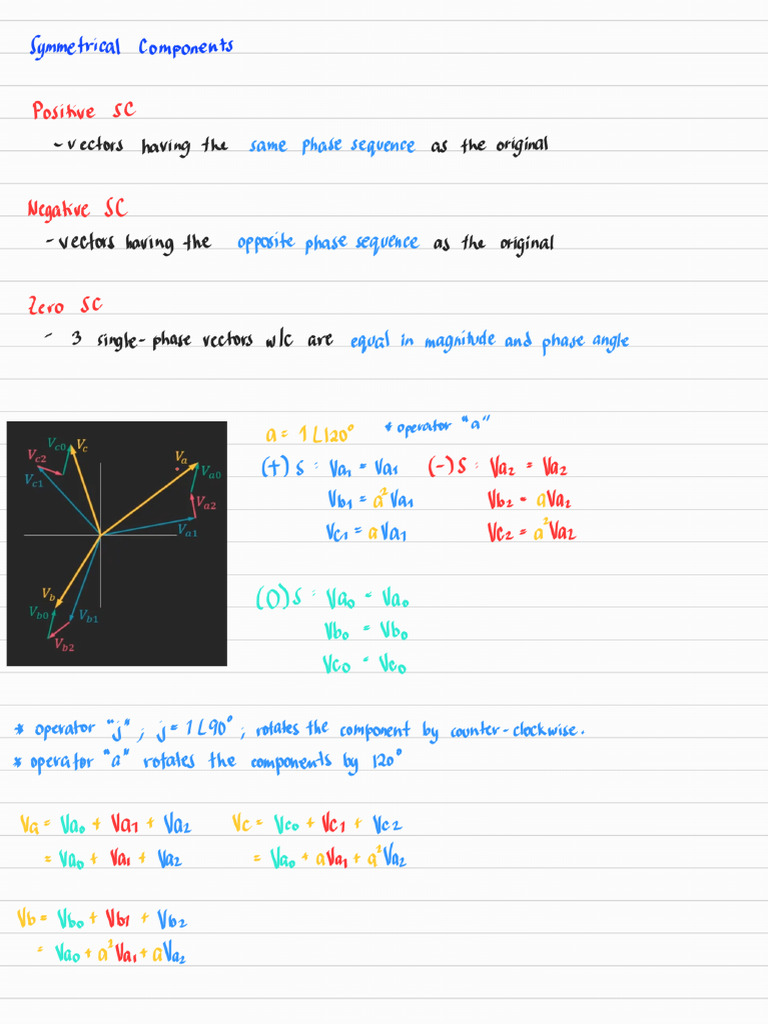 Symmetrical Components
Positive SC
- vectors having the same phase sequence as the original
Negative SC
- vectors having the opposite phase sequence as the original
Zero SC
- 3 single-phase vectors w/c are equal in magnitude and phase angle
V_c0 V_c
V_c2
V_c1
V_a
V_a0
V_a2
V_a1
V_b
V_b0 V_b1
V_b2
a = 1∠120° * operator "a"
(+) S : Va₁ = Va₁ (-) S : Va₂ = Va₂
Vb₁ = a²Va₁ Vb₂ = aVa₂
Vc₁ = aVa₁ Vc₂ = a²Va₂
(0) S : Va₀ = Va₀
Vb₀ = Vb₀
Vc₀ = Vc₀
* operator "j" ; j = 1∠90° ; rotates the component by counter-clockwise.
* operator "a" rotates the components by 120°
Va = Va₀ + Va₁ + Va₂ Vc = Vc₀ + Vc₁ + Vc₂
= Va₀ + Va₁ + Va₂ = Va₀ + aVa₁ + a²Va₂
Vb = Vb₀ + Vb₁ + Vb₂
= Va₀ + a²Va₁ + aVa₂